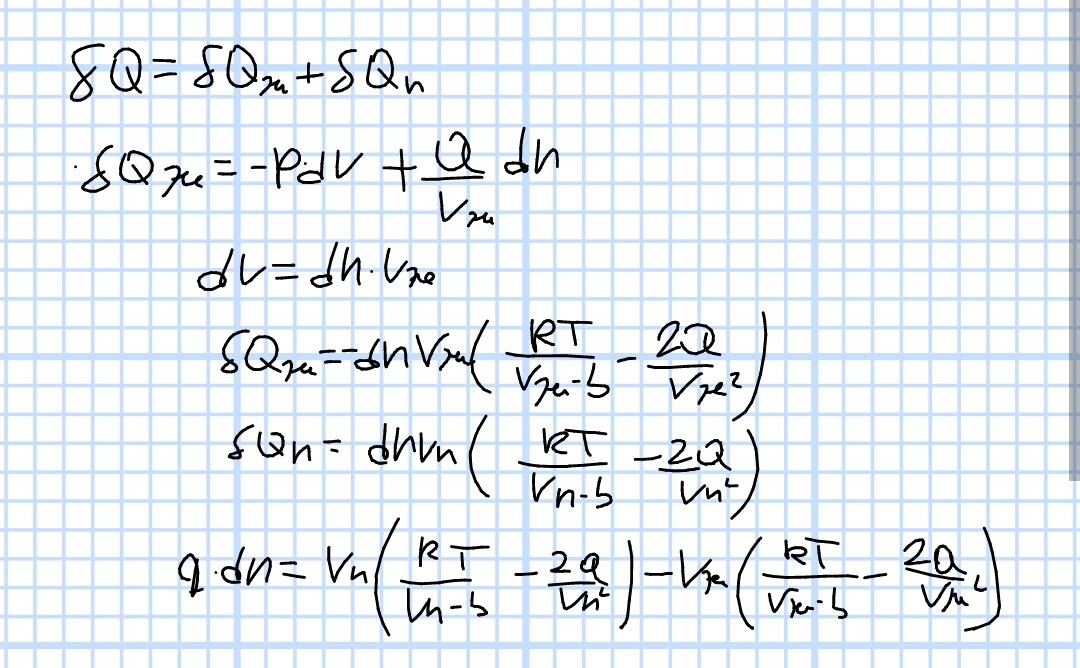 δQ = δQж + δQп
δQж = -PdV + a/Vж dn
dV = dn·Vж
δQж = -dnVж( RT/(Vж-b) - 2a/Vж² )
δQп = dnVп( RT/(Vп-b) - 2a/Vп² )
q·dn = Vп( RT/(Vп-b) - 2a/Vп² ) - Vж( RT/(Vж-b) - 2a/Vж² )